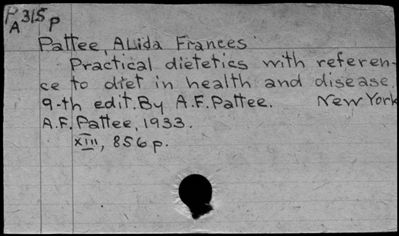 P 315 p
A
Pattee, Alida Frances
Practical dietetics with referen-
ce to diet in health and disease.
9-th edit. By A.F. Pattee. New York
A.F. Pattee, 1933.
XIII, 856 p.